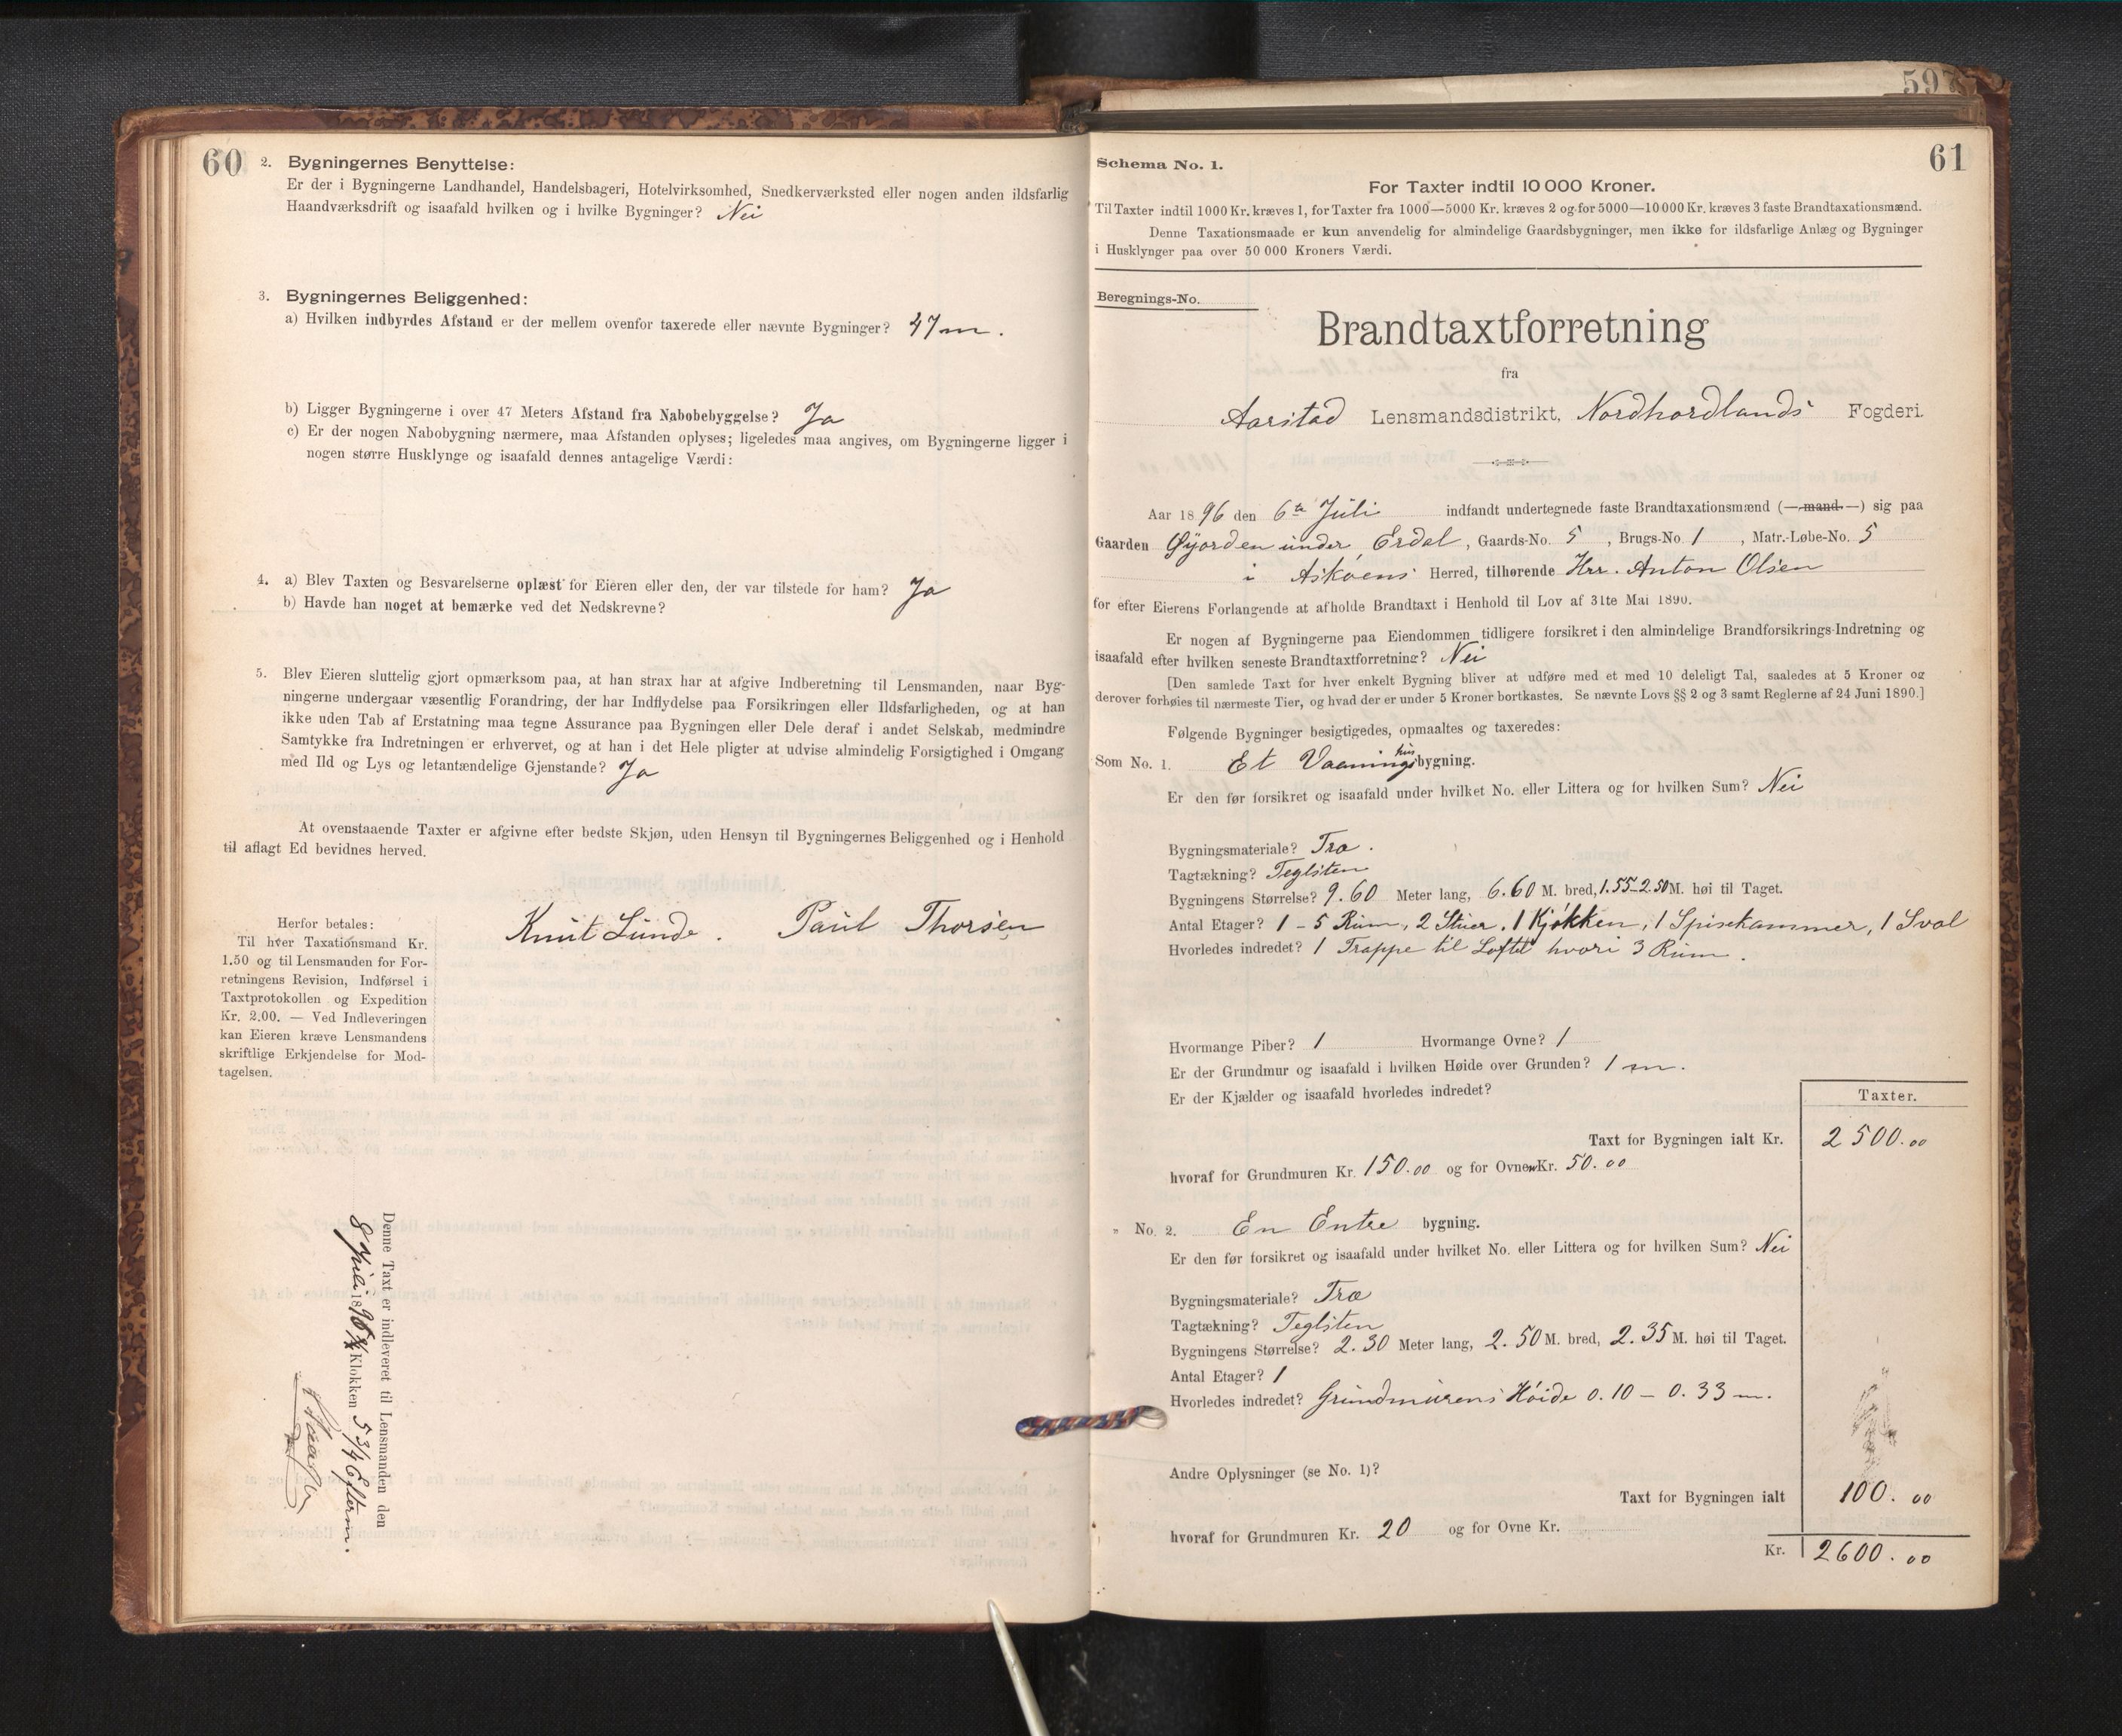 60
2. Bygningernes Benyttelse:
Er der i Bygningerne Landhandel, Handelsbageri, Hotelvirksomhed, Snedkerværksted eller nogen anden ildsfarlig
Haandværksdrift og isaafald hvilken og i hvilke Bygninger? Nei
3. Bygningernes Beliggenhed:
a) Hvilken indbyrdes Afstand er der mellem ovenfor taxerede eller nævnte Bygninger? 47 m.
b) Ligger Bygningerne i over 47 Meters Afstand fra Nabobebyggelse? Ja
c) Er der nogen Nabobygning nærmere, maa Afstanden oplyses; ligeledes maa angives, om Bygningerne ligger i
nogen større Husklynge og isaafald dennes antagelige Værdi:
4. a) Blev Taxten og Besvarelserne oplæst for Eieren eller den, der var tilstede for ham? Ja
b) Havde han noget at bemærke ved det Nedskrevne?
5. Blev Eieren sluttelig gjort opmærksom paa, at han strax har at afgive Indberetning til Lensmanden, naar Byg-
ningerne undergaar væsentlig Forandring, der har Indflydelse paa Forsikringen eller Ildsfarligheden, og at han
ikke uden Tab af Erstatning maa tegne Assurance paa Bygningen eller Dele deraf i andet Selskab, medmindre
Samtykke fra Indretningen er erhvervet, og at han i det Hele pligter at udvise almindelig Forsigtighed i Omgang
med Ild og Lys og letantændelige Gjenstande? Ja
At ovenstaaende Taxter er afgivne efter bedste Skjøn, uden Hensyn til Bygningernes Beliggenhed og i Henhold
til aflagt Ed bevidnes herved.
Knut Lunde. Paul Thorsen
Herfor betales:
Til hver Taxationsmand Kr.
1.50 og til Lensmanden for For-
retningens Revision, Indførsel i
Taxtprotokollen og Expedition
Kr. 2.00. — Ved Indleveringen
kan Eieren kræve Lensmandens
skriftlige Erkjendelse for Mod-
tagelsen.
Denne Taxt er indleveret til Lensmanden den
8 Juli 1896 Klokken 5 3/4 Efterm.
597
61
Schema No. 1.
For Taxter indtil 10 000 Kroner.
Til Taxter indtil 1000 Kr. kræves 1, for Taxter fra 1000—5000 Kr. kræves 2 og for 5000—10000 Kr. kræves 3 faste Brandtaxationsmænd.
Denne Taxationsmaade er kun anvendelig for almindelige Gaardsbygninger, men ikke for ildsfarlige Anlæg og Bygninger
i Husklynger paa over 50 000 Kroners Værdi.
Beregnings-No.
Brandtaxtforretning
fra
Aarstad Lensmandsdistrikt, Nordhordlands Fogderi.
Aar 1896 den 6te Juli indfandt undertegnede faste Brandtaxationsmænd (— mand —) sig paa
Gaarden Øyorden under Erdal, Gaards-No. 5, Brugs-No. 1, Matr.-Løbe-No. 5
i Askøens Herred, tilhørende Hrr. Anton Olsen
for efter Eierens Forlangende at afholde Brandtaxt i Henhold til Lov af 31te Mai 1890.
Er nogen af Bygningerne paa Eiendommen tidligere forsikret i den almindelige Brandforsikrings-Indretning og
isaafald efter hvilken seneste Brandtaxtforretning? Nei
[Den samlede Taxt for hver enkelt Bygning bliver at udføre med et med 10 deleligt Tal, saaledes at 5 Kroner og
derover forhøies til nærmeste Tier, og hvad der er under 5 Kroner bortkastes. Se nævnte Lovs §§ 2 og 3 samt Reglerne af 24 Juni 1890.]
Følgende Bygninger besigtigedes, opmaaltes og taxeredes:
Som No. 1. Et Vaaningshusbygning.
Er den før forsikret og isaafald under hvilket No. eller Littera og for hvilken Sum? Nei
Bygningsmateriale? Træ.
Tagtækning? Teglsten
Bygningens Størrelse? 9.60 Meter lang, 6.60 M. bred, 1.55-2.50 M. høi til Taget.
Antal Etager? 1 - 5 Rum, 2 Stuer, 1 Kjøkken, 1 Spisekammer, 1 Sval
Hvorledes indredet? 1 Trappe til Loftet hvori 3 Rum.
Hvormange Piber? 1 Hvormange Ovne? 1
Er der Grundmur og isaafald i hvilken Høide over Grunden? 1 m.
Er der Kjælder og isaafald hvorledes indredet?
Taxter.
Taxt for Bygningen ialt Kr. 2500.00
hvoraf for Grundmuren Kr. 150.00 og for Ovnen Kr. 50.00
" No. 2. En Entre bygning.
Er den før forsikret og isaafald under hvilket No. eller Littera og for hvilken Sum? Nei
Bygningsmateriale? Træ
Tagtækning? Teglsten
Bygningens Størrelse? 2.30 Meter lang, 2.50 M. bred, 2.35 M. høi til Taget.
Antal Etager? 1
Hvorledes indredet? Grundmurens Høide 0.10 - 0.33 m.
Andre Oplysninger (se No. 1)?
Taxt for Bygningen ialt 100.00
hvoraf for Grundmuren Kr. 20 og for Ovne Kr.
Kr. 2600.00